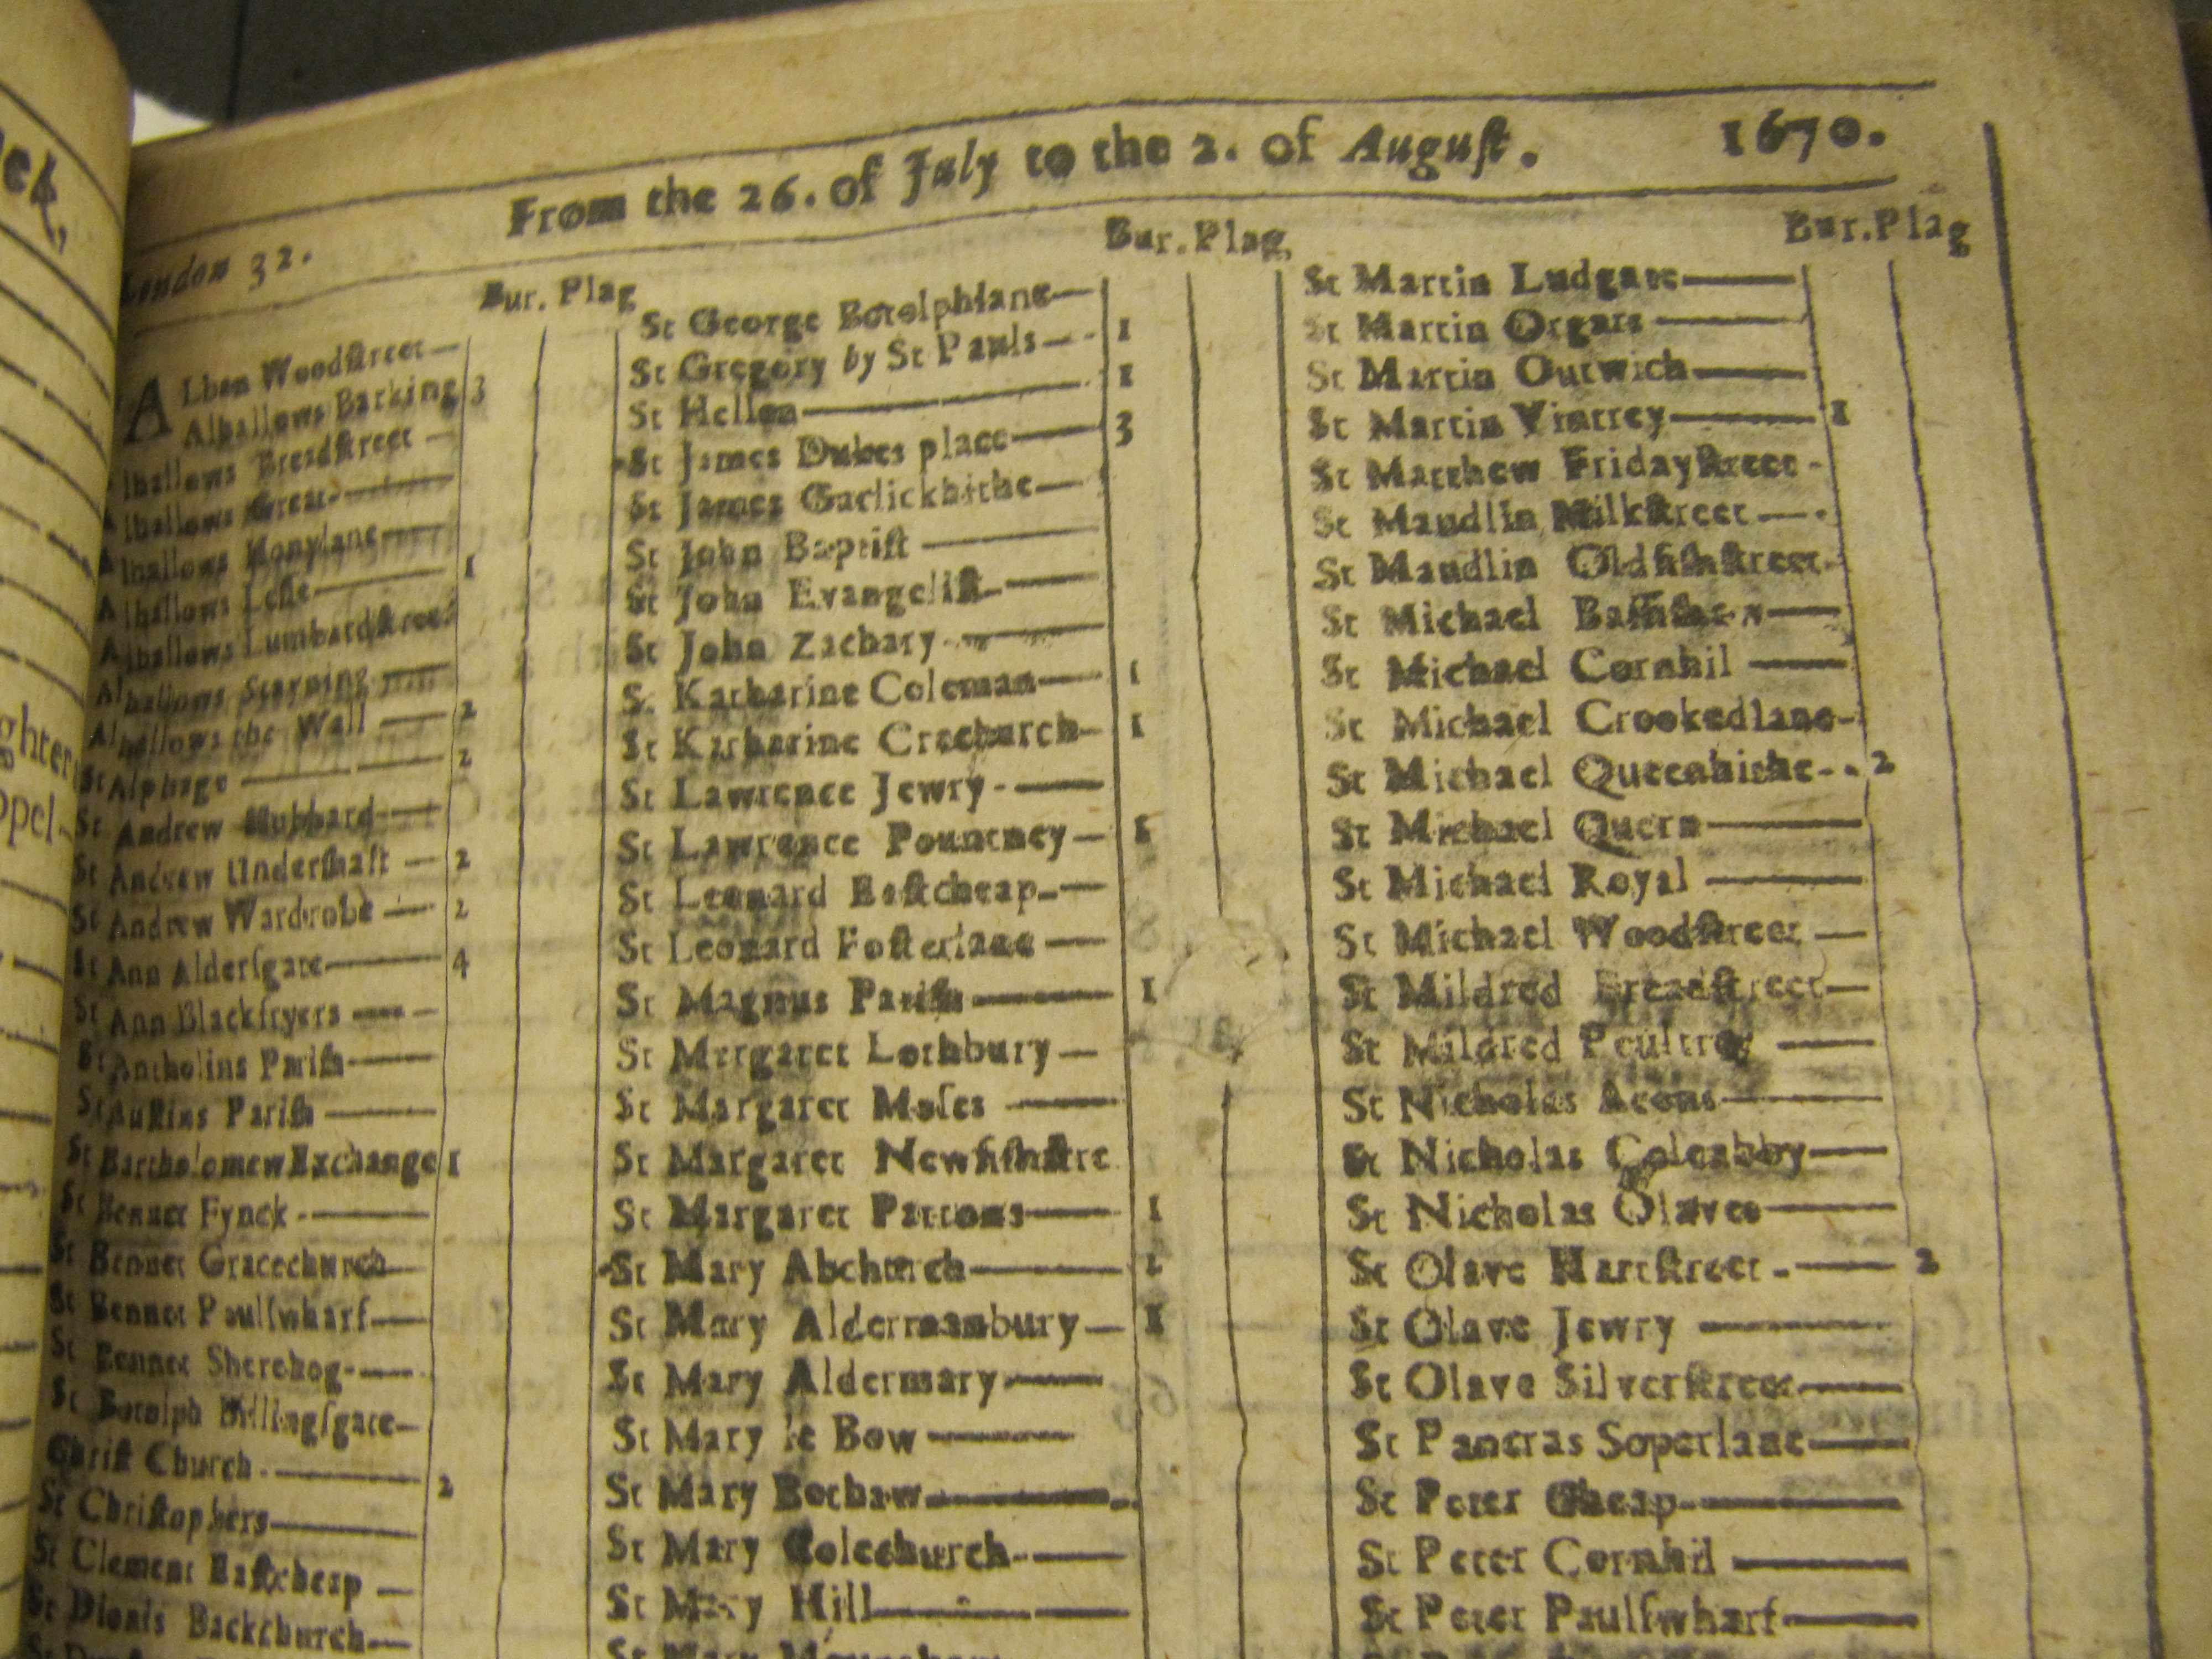 ck,
ghter
ppel-
London 32. From the 26. of July to the 2. of Auguſt. 1670.
Bur. Plag
ALban Woodſtreet—
Alhallows Barking 3
Alhallows Breadſtreet —
Alhallows Great-
Alhallows Honylane—
Alhallows Leſſe— 1
Alhallows Lumbardſtreet
Alhallows Stayning —
Alhallows the Wall — 2
St Alphage — 2
St Andrew Hubbard—
St Andrew Underſhaft — 2
St Andrew Wardrobe — 2
St Ann Alderſgate— 4
St Ann Blackfryers —
St Antholins Pariſh—
St Auſtins Pariſh —
St Bartholomew Exchange 1
St Bennet Fynck -—
St Bennet Gracechurch—
St Bennet Paulſwharf—
St Bennet Sherehog-—
St Botolph Billingſgate—
Chriſt Church-— 2
St Chriſtophers—
St Clement Eaſtcheap —
St Dionis Backchurch—
Bur. Plag
St George Botolphlane—
St Gregory by St Pauls— 1
St Hellen— 1
St James Dukes place— 3
St James Garlickhithe—
St John Baptiſt —
St John Evangeliſt—
St John Zachary —
St Katharine Coleman— 1
St Katharine Creechurch— 1
St Lawrence Jewry -—
St Lawrence Pountney— 1
St Leonard Eaſtcheap—
St Leonard Foſterlane —
St Magnus Pariſh — 1
St Margaret Lothbury —
St Margaret Moſes —
St Margaret Newfiſhſtre
St Margaret Pattons— 1
St Mary Abchurch—
St Mary Aldermanbury— 1
St Mary Aldermary—
St Mary le Bow —
St Mary Bothaw—
St Mary Colechurch-—
St Mary Hill—
Bur. Plag
St Martin Ludgate—
St Martin Orgars —
St Martin Outwich—
St Martin Vintrey— 1
St Matthew Fridayſtreet -
St Maudlin Milkſtreet —
St Maudlin Oldfiſhſtreet-
St Michael Baſſiſhaw—
St Michael Cornhil —
St Michael Crookedlane-
St Michael Queenhithe-- 2
St Michael Quern—
St Michael Royal —
St Michael Woodſtreet —
St Mildred Breadſtreet—
St Mildred Poultrey —
St Nicholas Acons—
St Nicholas Coleabby—
St Nicholas Olaves—
St Olave Hartſtreet -— 2
St Olave Jewry —
St Olave Silverſtreet—
St Pancras Soperlane—
St Peter Cheap—
St Peter Cornhil —
St Peter Paulſwharf—